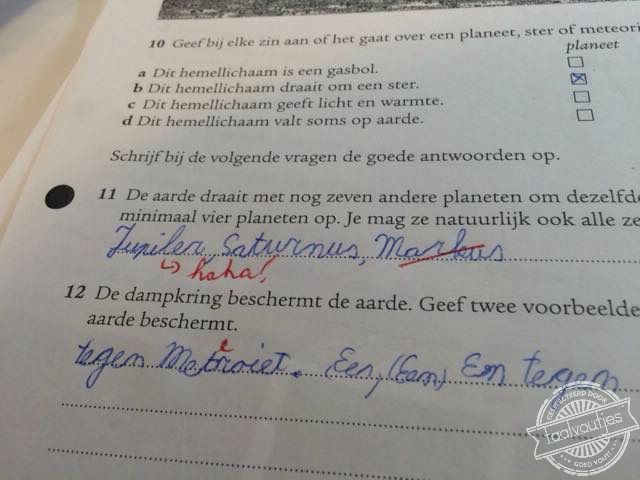 10 Geef bij elke zin aan of het gaat over een planeet, ster of meteori
planeet
a Dit hemellichaam is een gasbol.
b Dit hemellichaam draait om een ster.
c Dit hemellichaam geeft licht en warmte.
d Dit hemellichaam valt soms op aarde.
Schrijf bij de volgende vragen de goede antwoorden op.
11 De aarde draait met nog zeven andere planeten om dezelfde
minimaal vier planeten op. Je mag ze natuurlijk ook alle ze
Jupiler, Saturnus, Markus
haha!
12 De dampkring beschermt de aarde. Geef twee voorbeelde
aarde beschermt.
e
tegen Metroriet. Een, (Een) Em tegen
GESELECTEERD DOOR
taalvoutjes
GOED VOUT!